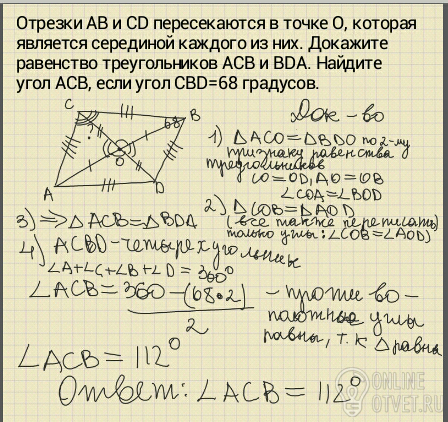 Отрезки AB и CD пересекаются в точке О, которая
является серединой каждого из них. Докажите
равенство треугольников ACB и BDA. Найдите
угол ACB, если угол CBD=68 градусов.
Док-во
C
B
68
?
O
A
D
1) △ACO=△BDO по 2-му
признаку равенства
треугольников
CO=OD, AO=OB
∠COA=∠BOD
2) △COB=△AOD
(все также переписать
только углы: ∠COB=∠AOD)
3) ⇒ △ACB=△BDA
4) ACBD-четырехугольник
∠A+∠C+∠B+∠D=360°
∠ACB=360-(68•2)
2
-противо-
положные углы
равны, т.к △ равны
∠ACB=112°
Ответ: ∠ACB=112°
ONLINE
OTVET.RU